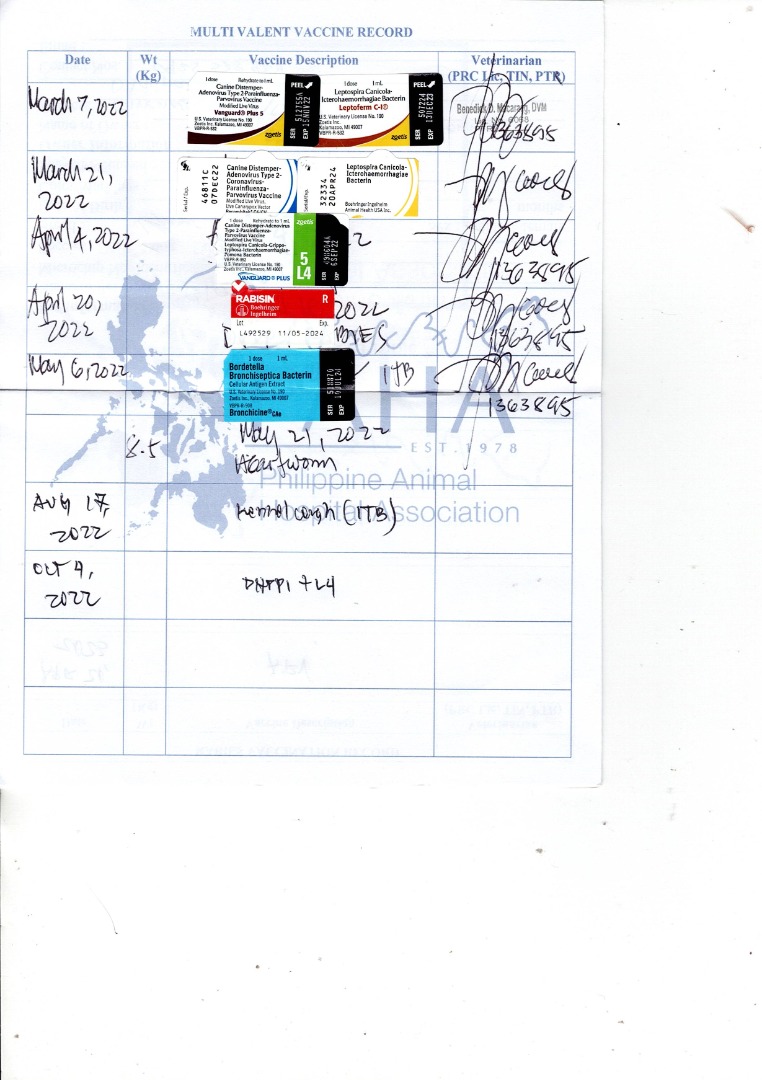 MULTI VALENT VACCINE RECORD
Date
Wt
(Kg)
Vaccine Description
Veterinarian
(PRC Lic, TIN, PTR)
March 7, 2022
1 dose Rehydrate to 1 mL
Canine Distemper-
Adenovirus Type 2-Parainfluenza-
Parvovirus Vaccine
Modified Live Virus
Vanguard® Plus 5
U.S. Veterinary License No. 190
Zoetis Inc. Kalamazoo, MI 49007
VBPR-R-502
zoetis
PEEL
SER
EXP 15NOV22
1 dose 1 mL
Leptospira Canicola-
Icterohaemorrhagiae Bacterin
Leptoferm C-I®
U.S. Veterinary License No. 190
Zoetis Inc.
Kalamazoo, MI 49007
zoetis
PEEL
SER
EXP 13DEC23
DVM
1363895
March 21,
2022
Serial / Exp.
46811C
07DEC22
Canine Distemper-
Adenovirus Type 2-
Coronavirus-
Parainfluenza-
Parvovirus Vaccine
Modified Live Virus
Live Canarypox Vector
Serial / Exp.
32334
20APR24
Leptospira Canicola-
Icterohaemorrhagiae
Bacterin
Boehringer Ingelheim
Animal Health USA Inc.
April 4, 2022
1 dose Rehydrate to 1 mL
Canine Distemper-Adenovirus
Type 2-Parainfluenza-
Parvovirus Vaccine
Modified Live Virus
Leptospira Canicola-Grippo-
typhosa-Icterohaemorrhagiae-
Pomona Bacterin
U.S. Veterinary License No. 190
Zoetis Inc., Kalamazoo, MI 49007
VANGUARD® PLUS
zoetis
5
L4
SER
EXP 6SEP22
1363895
April 20,
2022
RABISIN R
Boehringer
Ingelheim
Lot Exp.
L492529 11/05-2024
2022
1363895
May 6, 2022
1 dose 1 mL
Bordetella
Bronchiseptica Bacterin
Cellular Antigen Extract
U.S. Veterinary License No. 190
Zoetis Inc. Kalamazoo, MI 49007
Bronchicine®CAe
SER
EXP 19JUL24
ITB
1363895
8.5
May 21, 2022
Heartworm
AHA
EST. 1978
Philippine Animal
Hospital Association
Aug 17,
2022
Kennel cough (ITB)
Oct 4,
2022
DHPPI + L4